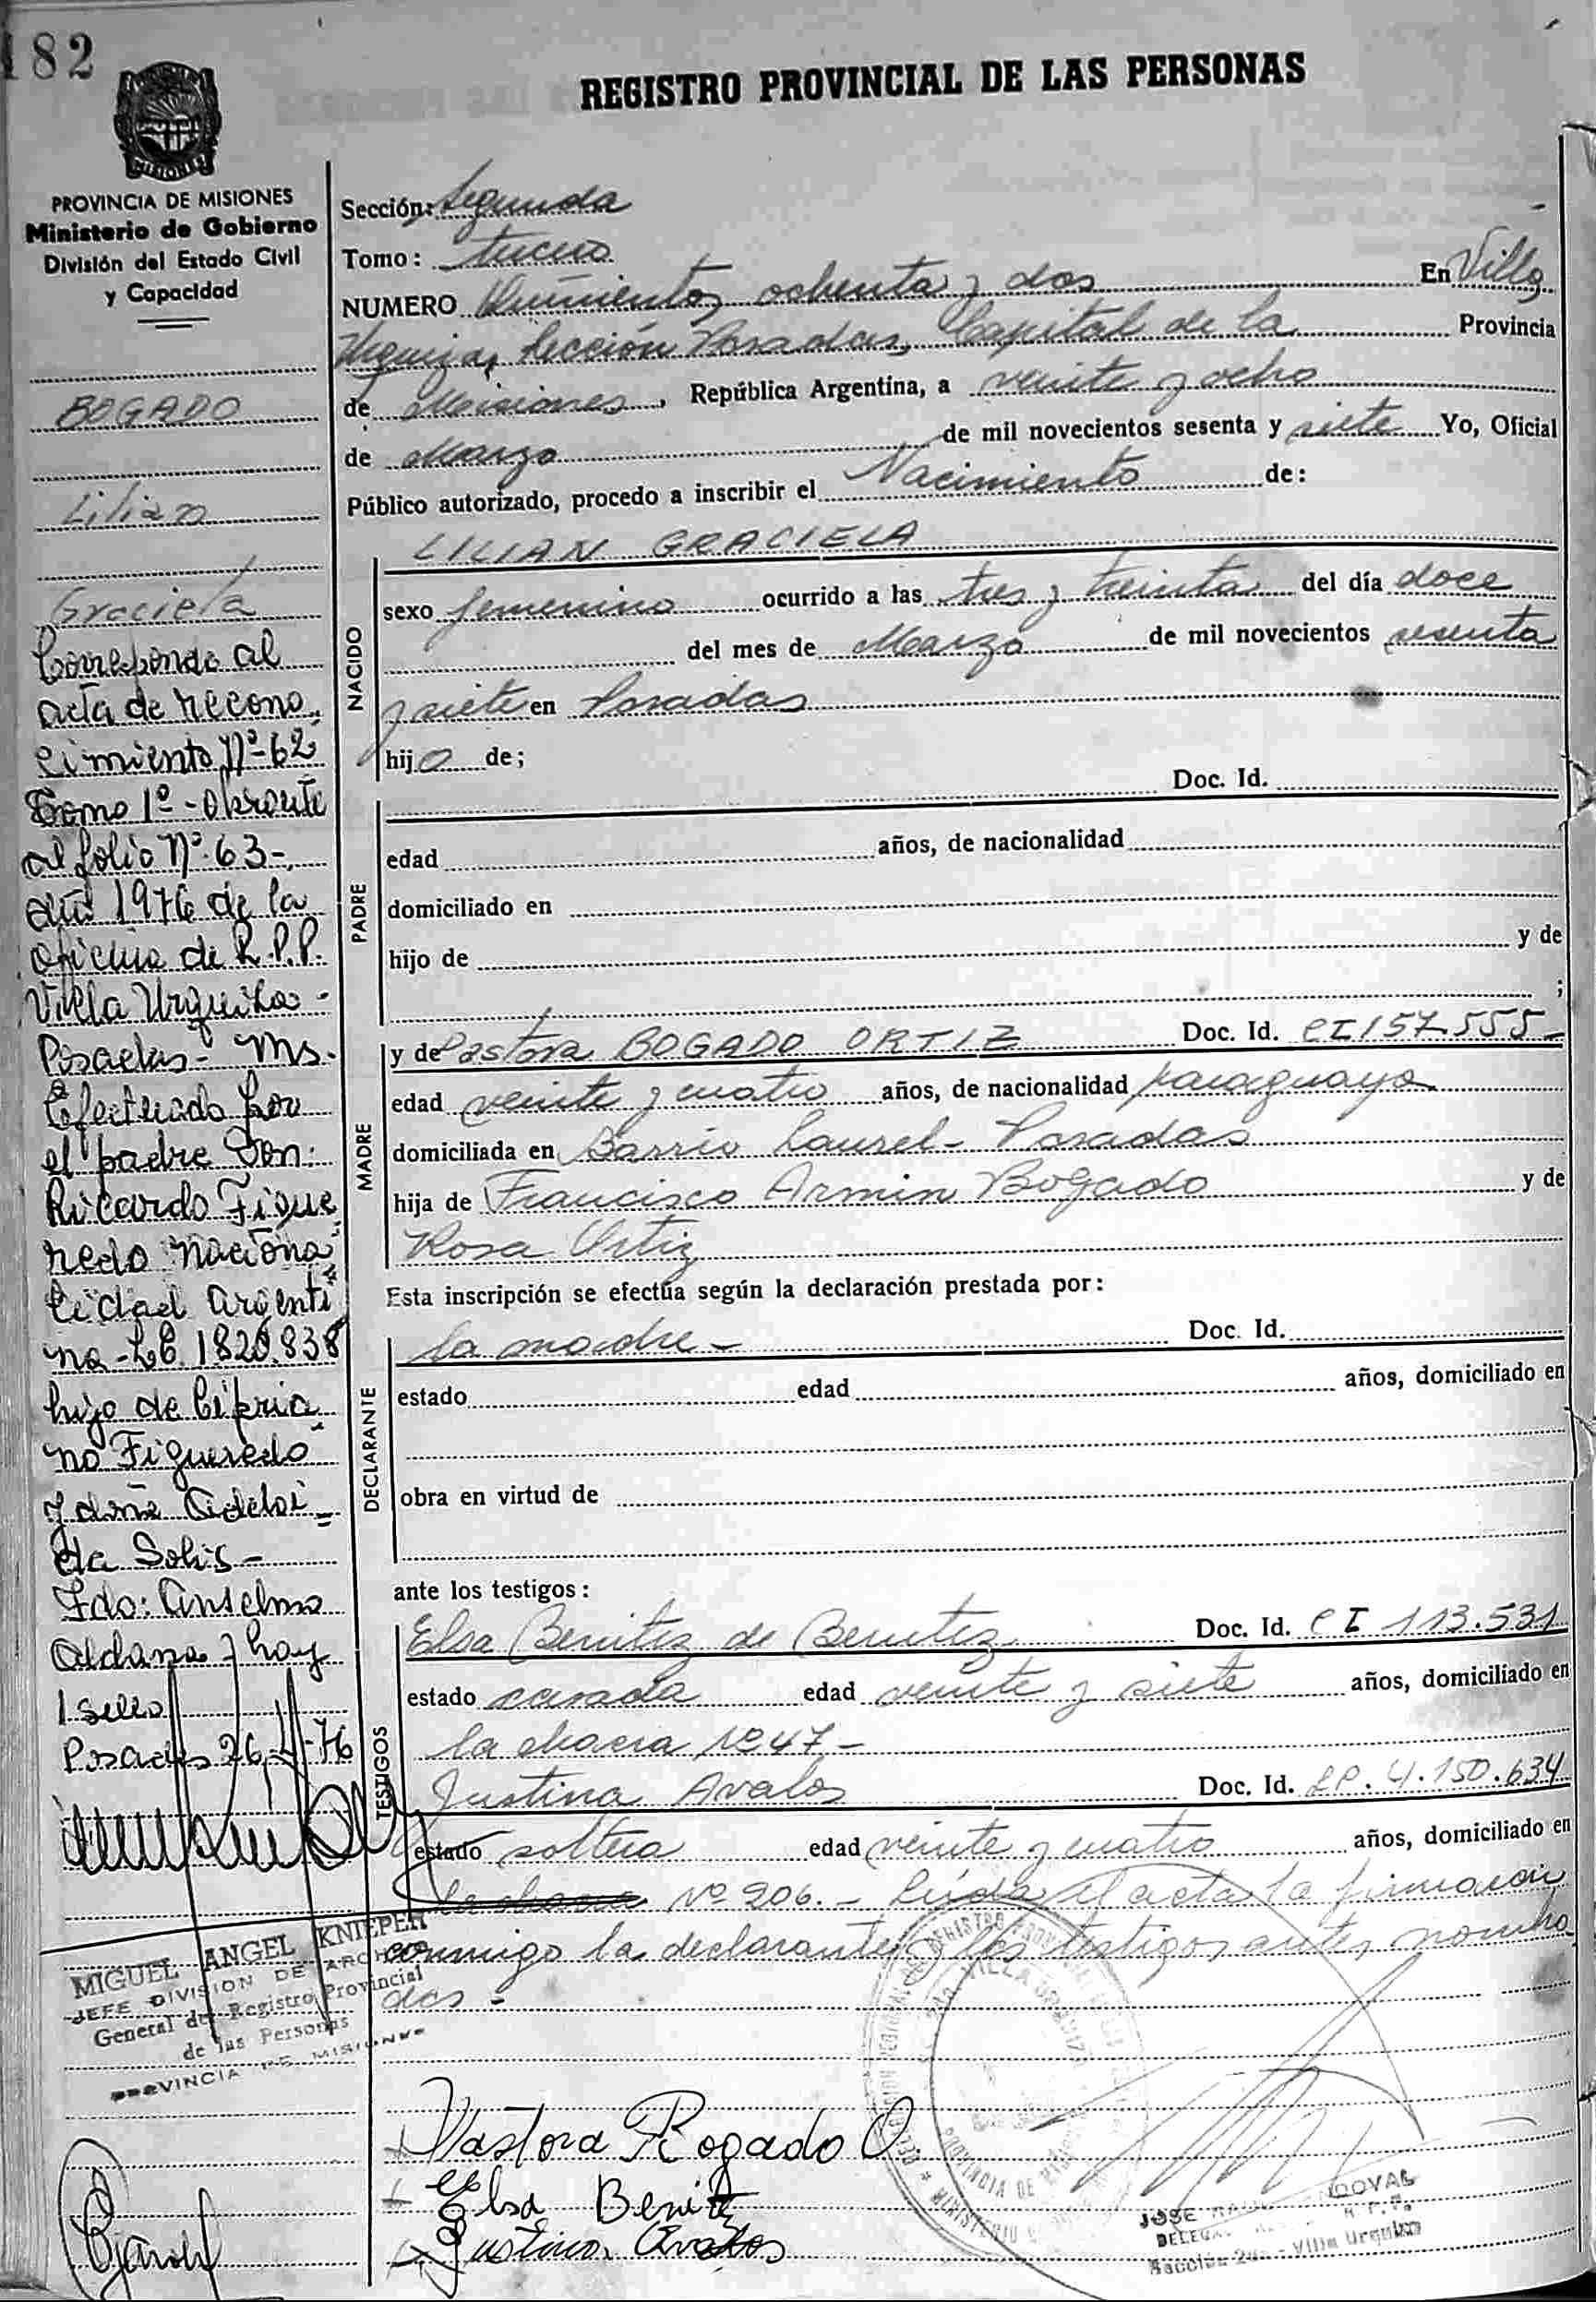 182
REGISTRO PROVINCIAL DE LAS PERSONAS
MISIONES
PROVINCIA DE MISIONES
Ministerio de Gobierno
División del Estado Civil
y Capacidad
BOGADO
Lilian
Graciela
Corresponde al
acta de recono
cimiento Nº-62
Tomo 1º- Obrante
al folio Nº 63-,
año 1976 de la
oficina de R.P.P.
Villa Urquiza -
Posadas - Ms.
Efectuado por
el padre Don:
Riccardo Figue
redo naciona
lidad argenti
na - LE 1820.838
hijo de Cipria
no Figueredo
y doña Adelai
da Solis -
Fdo: Anselmo
Aldana y hay
1 sello
Posadas 26-4-76
MIGUEL ANGEL KNIEPER
JEFE DIVISION DE ARCHIVO
General del Registro Provincial
de las Personas
PROVINCIA DE MISIONES
Sección: Segunda
Tomo: tercero
NUMERO Quinientos ochenta y dos En Villa
Urquiza, Sección Posadas, Capital de la Provincia
de Misiones, República Argentina, a veinte y ocho
de Marzo de mil novecientos sesenta y siete Yo, Oficial
Público autorizado, procedo a inscribir el Nacimiento de:
LILIAN GRACIELA
NACIDO
sexo femenino ocurrido a las tres y treinta del día doce
del mes de Marzo de mil novecientos sesenta
y siete en Posadas
hija de;
Doc. Id.
PADRE
edad años, de nacionalidad
domiciliado en
hijo de y de
;
MADRE
y de Pastora BOGADO ORTIZ Doc. Id. CI 157.555-
edad veinte y cuatro años, de nacionalidad paraguaya
domiciliada en Barrio Laurel - Posadas
hija de Francisco Armin Bogado y de
Rosa Ortiz
Esta inscripción se efectúa según la declaración prestada por:
DECLARANTE
la madre - Doc. Id.
estado edad años, domiciliado en
obra en virtud de
ante los testigos:
TESTIGOS
Elsa Benitez de Benitez Doc. Id. CI 113.531
estado casada edad veinte y siete años, domiciliado en
la chacra Nº 47 -
Justina Avalos Doc. Id. LC. 4.150.634
estado soltera edad veinte y cuatro años, domiciliado en
la chacra Nº 206. - Leída el acta la firmaron
conmigo la declarante y los testigos antes nombra
dos -
Pastora Bogado O.
Elsa Benitez
Justina Avalos
JOSE RAUL DOVAL
Sección 2da - Villa Urquiza